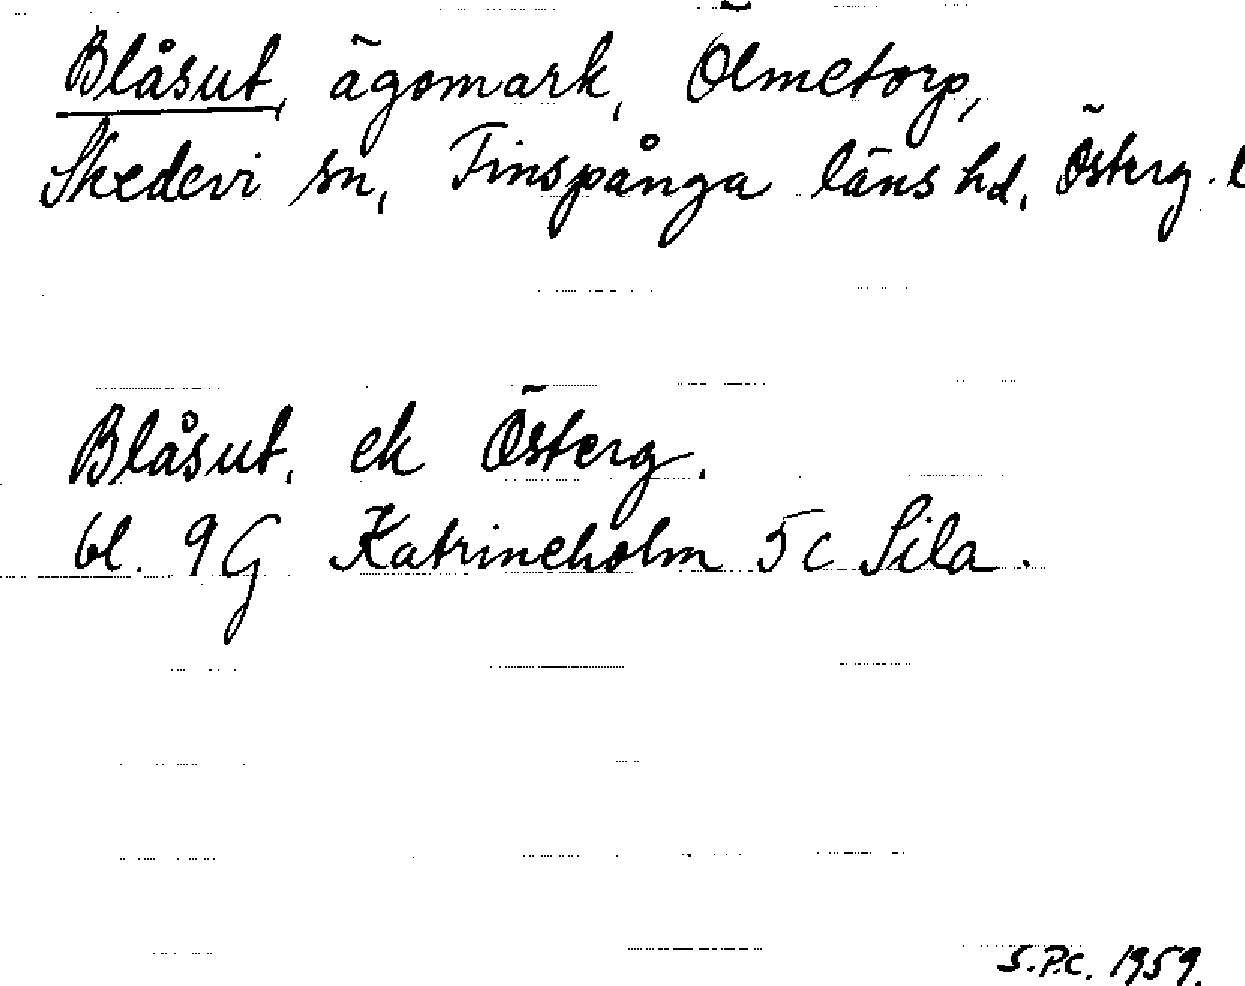 Blåsut, ägomark, Ölmetorp,
Skedevi sn, Finspånga läns hd, Österg. l
Blåsut, ek Österg.
bl. 9G Katrineholm 5c Sila.
S.P.C. 1959.